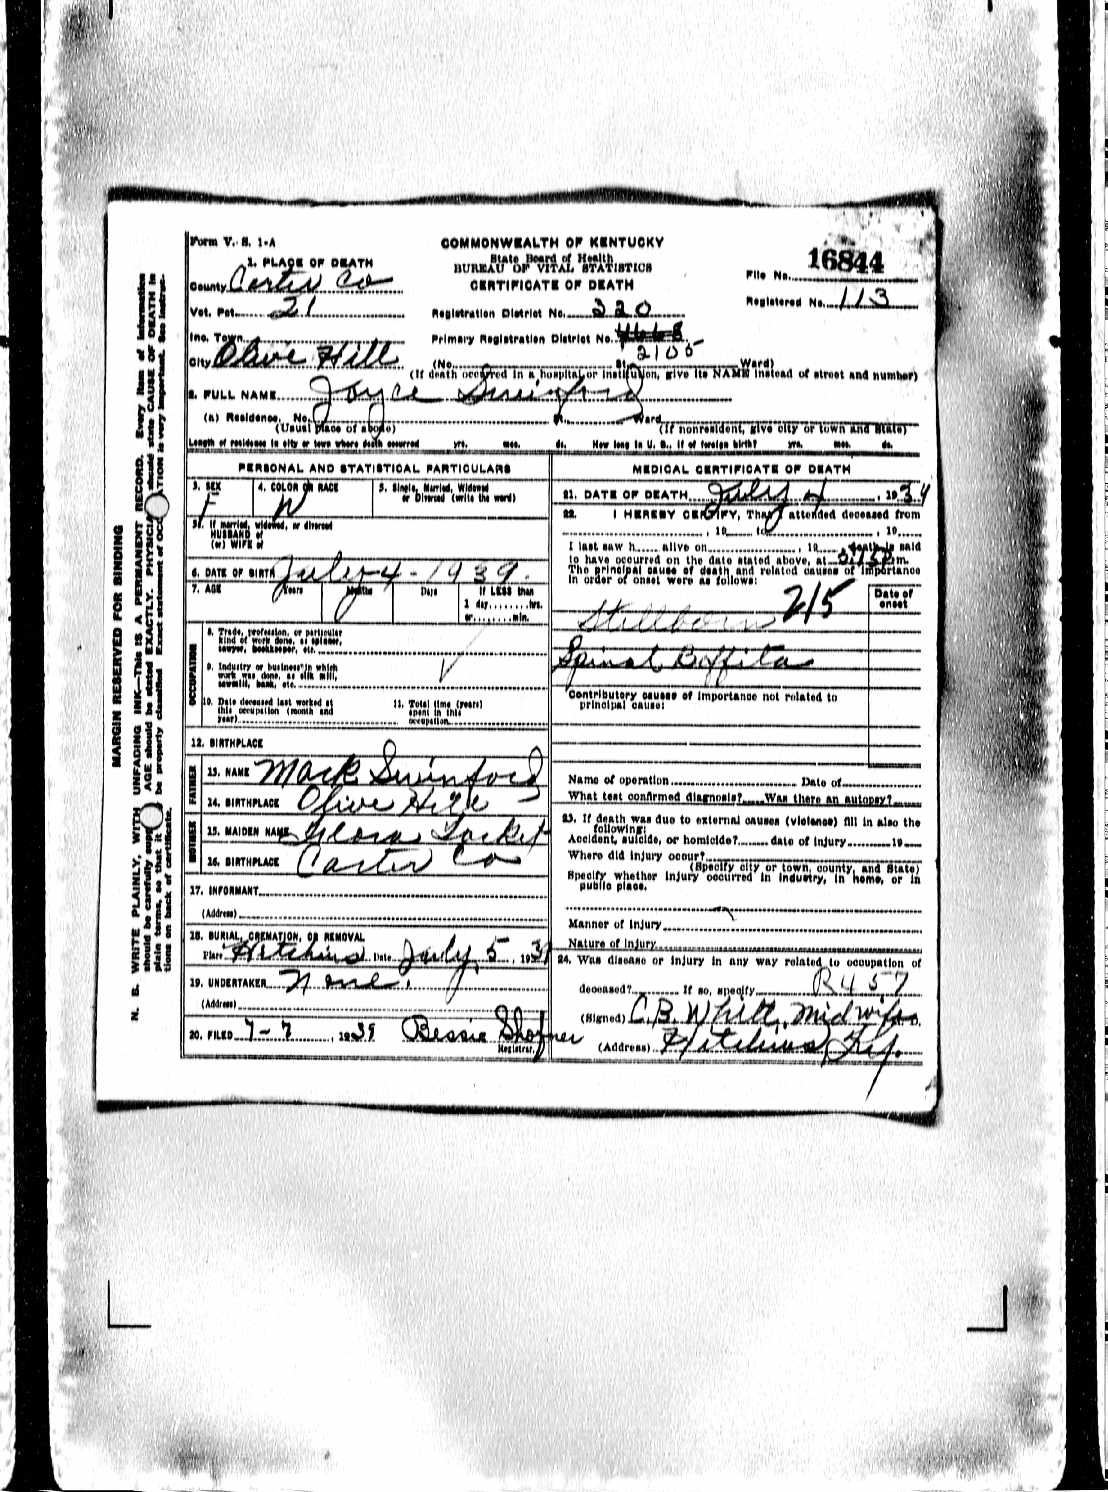 Form V. S. 1-A
COMMONWEALTH OF KENTUCKY
State Board of Health
BUREAU OF VITAL STATISTICS
CERTIFICATE OF DEATH
File No. 16844
Registered No. 113
1. PLACE OF DEATH
County Carter Co
Vot. Pct. 21
Inc. Town
City Olive Hill
Registration District No. 220
Primary Registration District No. 2105
(No. St. Ward)
(If death occurred in a hospital or institution, give its NAME instead of street and number)
2. FULL NAME Joyce Swinford
(a) Residence, No. St. Ward
(Usual place of abode) (If nonresident, give city or town and State)
Length of residence in city or town where death occurred yrs. mos. ds. How long in U. S., if of foreign birth? yrs. mos. ds.
PERSONAL AND STATISTICAL PARTICULARS
3. SEX F
4. COLOR OR RACE W
5. Single, Married, Widowed or Divorced (write the word)
If married, widowed, or divorced
HUSBAND of
(or) WIFE of
6. DATE OF BIRTH July 4 - 1939.
7. AGE Years Months Days If LESS than
1 day, ........hrs.
or ........min.
OCCUPATION
8. Trade, profession, or particular
kind of work done, as spinner,
sawyer, bookkeeper, etc.
9. Industry or business in which
work was done, as silk mill,
sawmill, bank, etc.
10. Date deceased last worked at
this occupation (month and
year)
11. Total time (years)
spent in this
occupation
12. BIRTHPLACE
FATHER
13. NAME Mack Swinford
14. BIRTHPLACE Olive Hill
MOTHER
15. MAIDEN NAME
16. BIRTHPLACE Carter Co
17. INFORMANT
(Address)
18. BURIAL, CREMATION, OR REMOVAL
Place Hitchins Date July 5, 1939
19. UNDERTAKER None.
(Address)
20. FILED 7-7, 1939 Bessie Shofner
Registrar
MEDICAL CERTIFICATE OF DEATH
21. DATE OF DEATH July 4, 1939
22. I HEREBY CERTIFY, That I attended deceased from
, 19 to , 19
I last saw h alive on , 19 death is said
to have occurred on the date stated above, at m.
The principal cause of death and related causes of importance
in order of onset were as follows:
Date of onset
Stillborn 215
Spinal Biffita
Contributory causes of importance not related to
principal cause:
Name of operation Date of
What test confirmed diagnosis? Was there an autopsy?
23. If death was due to external causes (violence) fill in also the
following:
Accident, suicide, or homicide? date of injury 19
Where did injury occur?
(Specify city or town, county, and State)
Specify whether injury occurred in industry, in home, or in
public place.
Manner of injury
Nature of injury
24. Was disease or injury in any way related to occupation of
deceased? If so, specify R457
(Signed) C.B. Whitt, Midwife
(Address) Hitchins, Ky.
MARGIN RESERVED FOR BINDING
N. B. WRITE PLAINLY, WITH UNFADING INK—THIS IS A PERMANENT RECORD. Every item of information
should be carefully AGE should be stated EXACTLY. PHYSICIA should state CAUSE OF DEATH in
plain terms, so that it be properly classified. Exact statement of is very important. See instruc-
tions on back of certificate.